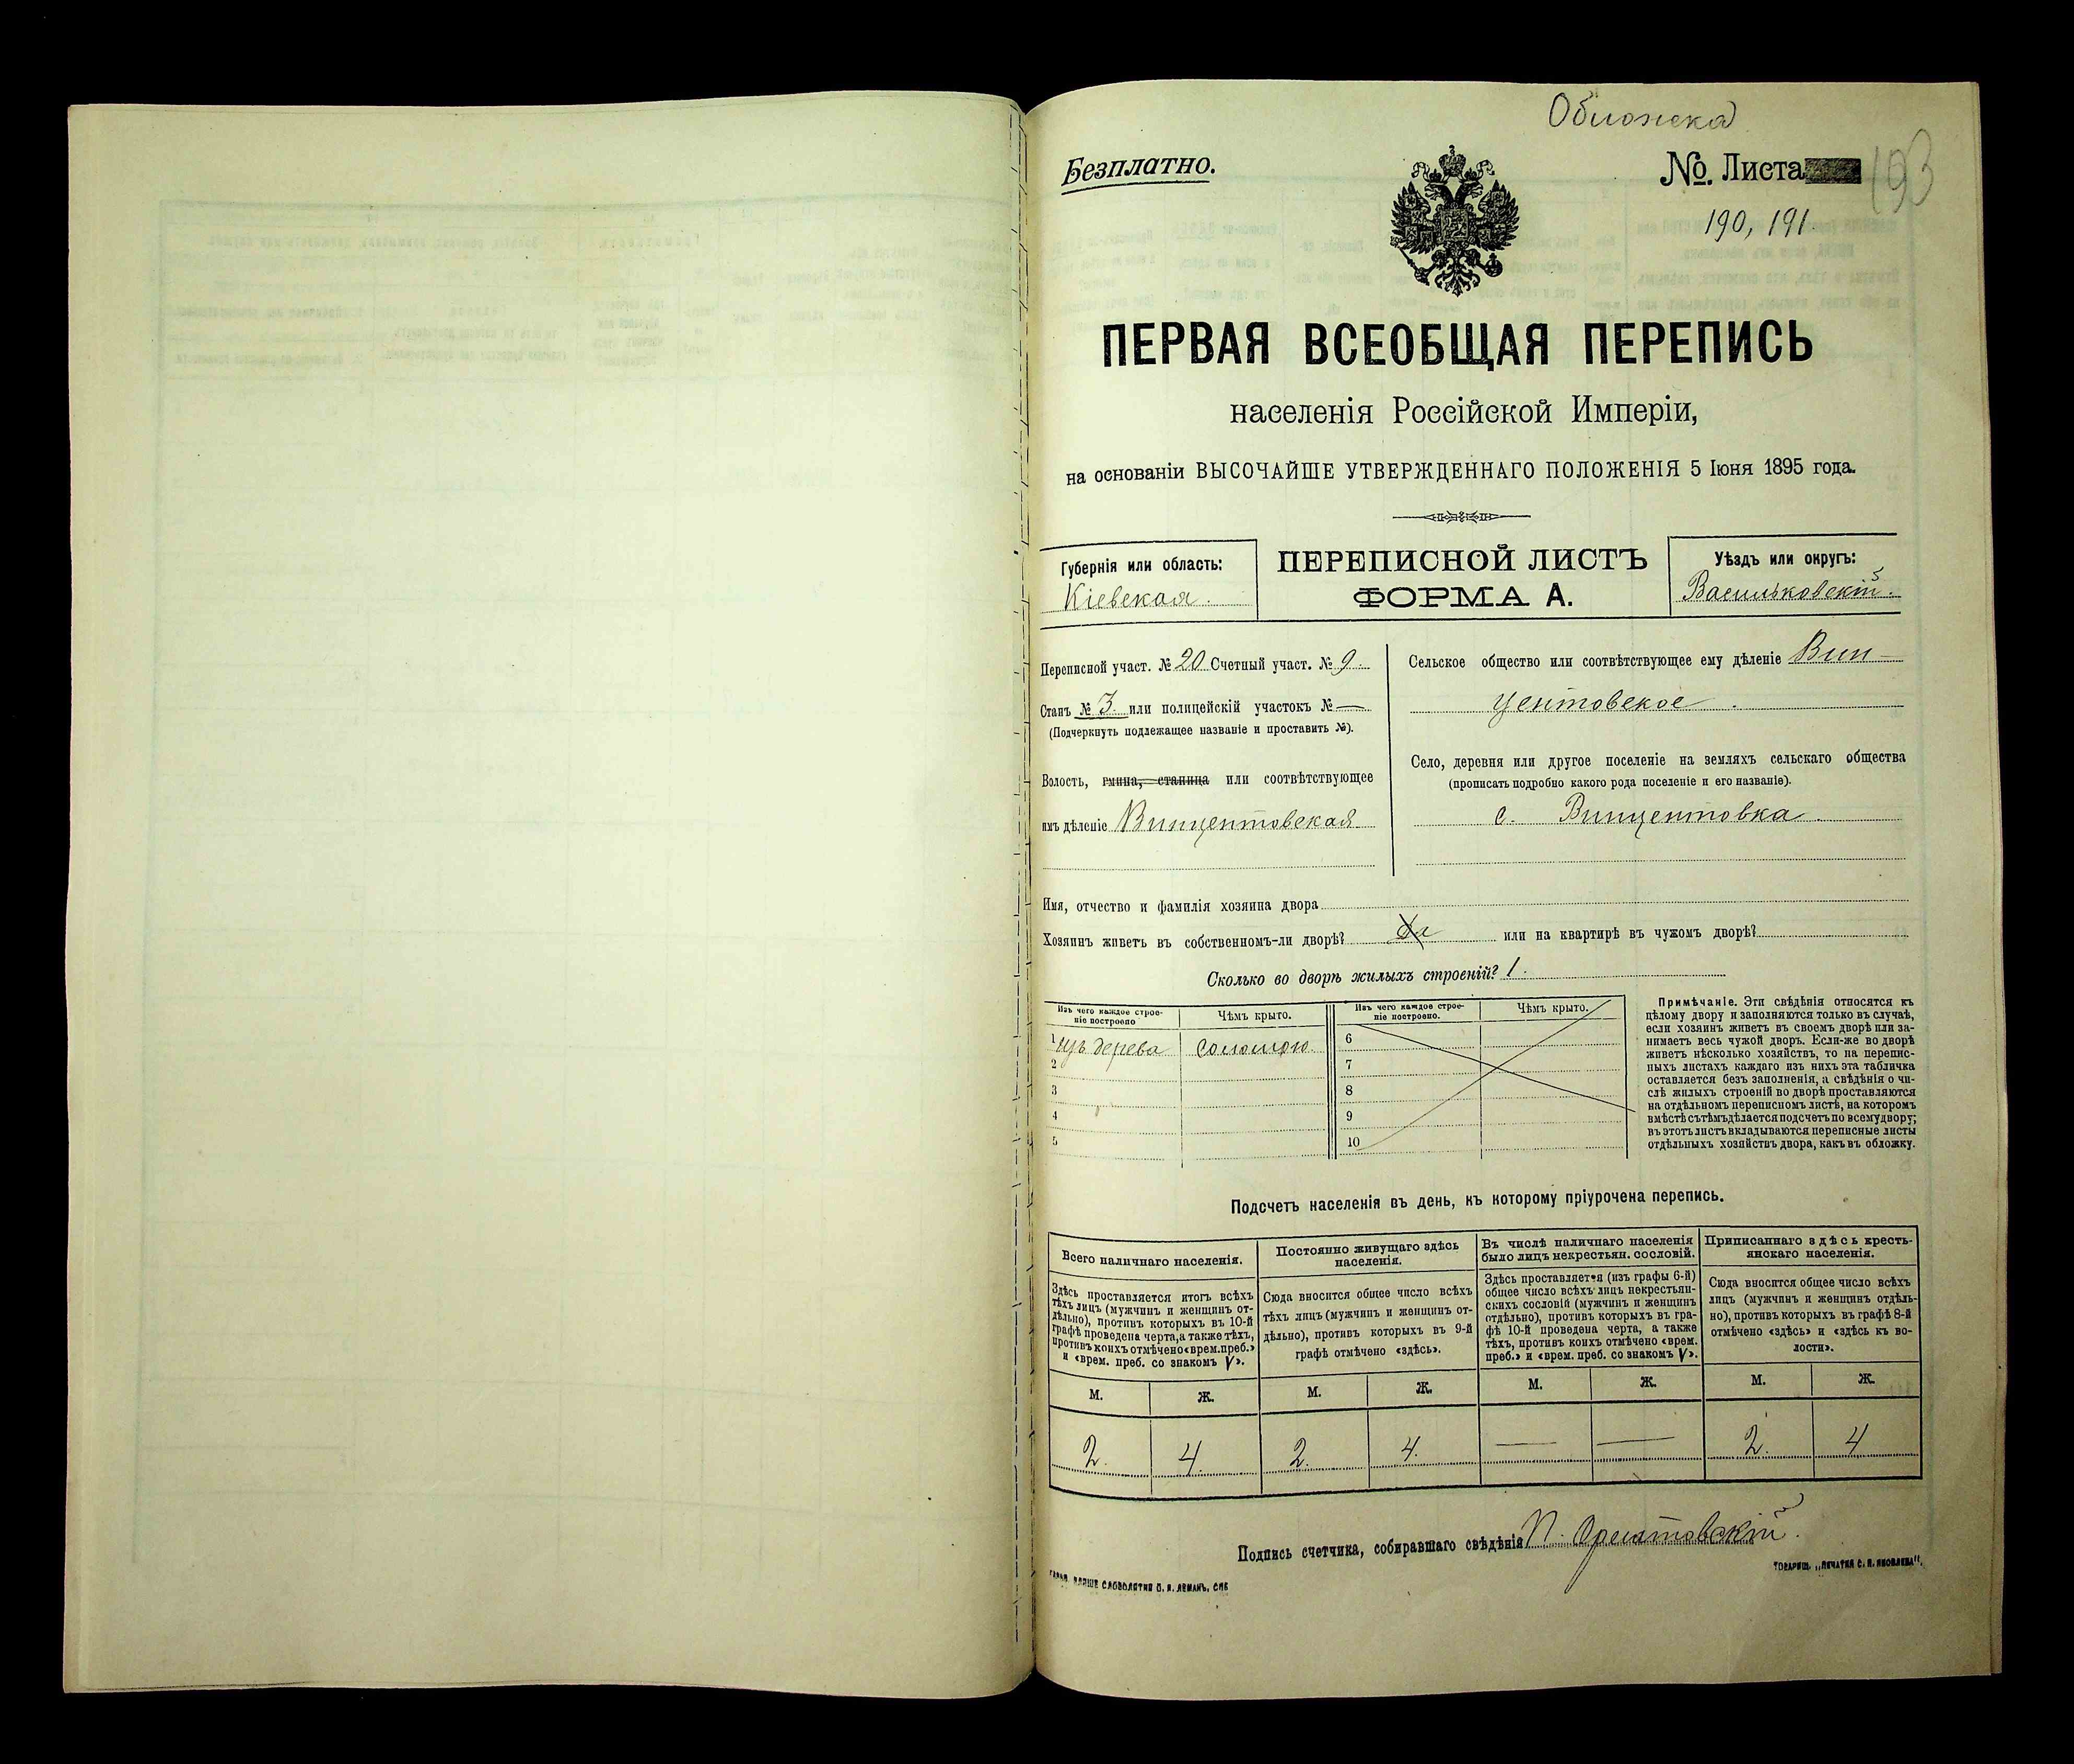 Обложка
Безплатно.
№. Листа
193
190, 191.
ПЕРВАЯ ВСЕОБЩАЯ ПЕРЕПИСЬ
населенія Россійской Имперіи,
на основаніи ВЫСОЧАЙШЕ УТВЕРЖДЕННАГО ПОЛОЖЕНІЯ 5 Іюня 1895 года.
Губернія или область:
Кіевская.
ПЕРЕПИСНОЙ ЛИСТЪ
ФОРМА А.
Уѣздъ или округъ:
Васильковскій.
Переписной участ. № 20 Счетный участ. № 9.
Станъ № 3. или полицейскій участокъ № —
(Подчеркнуть подлежащее названіе и проставить №).
Волость, гмина, станица или соотвѣтствующее
имъ дѣленіе Винцентовская
Сельское общество или соотвѣтствующее ему дѣленіе Вин-
центовское.
Село, деревня или другое поселеніе на земляхъ сельскаго общества
(прописать подробно какого рода поселеніе и его названіе).
с. Винцентовка.
Имя, отчество и фамилія хозяина двора
Хозяинъ живетъ въ собственномъ-ли дворѣ? Да или на квартирѣ въ чужомъ дворѣ?
Сколько во дворѣ жилыхъ строеній? 1.
Изъ чего каждое строе-
ніе построено
Чѣмъ крыто.
Изъ чего каждое строе-
ніе построено.
Чѣмъ крыто.
1 изъ дерева соломою.
2
3
4
5
6
7
8
9
10
Примѣчаніе. Эти свѣдѣнія относятся къ
цѣлому двору и заполняются только въ случаѣ,
если хозяинъ живетъ въ своемъ дворѣ или за-
нимаетъ весь чужой дворъ. Если-же во дворѣ
живетъ нѣсколько хозяйствъ, то на перепис-
ныхъ листахъ каждаго изъ нихъ эта табличка
оставляется безъ заполненія, а свѣдѣнія о чи-
слѣ жилыхъ строеній во дворѣ проставляются
на отдѣльномъ переписномъ листѣ, на которомъ
вмѣстѣ съ тѣмъ дѣлается подсчетъ по всему двору;
въ этотъ листъ вкладываются переписные листы
отдѣльныхъ хозяйствъ двора, какъ въ обложку.
Подсчетъ населенія въ день, къ которому пріурочена перепись.
Всего наличнаго населенія.
Постоянно живущаго здѣсь
населенія.
Въ числѣ наличнаго населенія
было лицъ некрестьян. сословій.
Приписаннаго здѣсь кресть-
янскаго населенія.
Здѣсь проставляется итогъ всѣхъ
тѣхъ лицъ (мужчинъ и женщинъ от-
дѣльно), противъ которыхъ въ 10-й
графѣ проведена черта, а также тѣхъ,
противъ коихъ отмѣчено «врем. преб.»
и «врем. преб. со знакомъ V».
Сюда вносится общее число всѣхъ
тѣхъ лицъ (мужчинъ и женщинъ от-
дѣльно), противъ которыхъ въ 9-й
графѣ отмѣчено «здѣсь».
Здѣсь проставляется (изъ графы 6-й)
общее число всѣхъ лицъ некрестьян-
скихъ сословій (мужчинъ и женщинъ
отдѣльно), противъ которыхъ въ гра-
фѣ 10-й проведена черта, а также
тѣхъ, противъ коихъ отмѣчено «врем.
преб.» и «врем. преб. со знакомъ V».
Сюда вносится общее число всѣхъ
лицъ (мужчинъ и женщинъ отдѣль-
но), противъ которыхъ въ графѣ 8-й
отмѣчено «здѣсь» и «здѣсь къ во-
лости».
М. Ж. М. Ж. М. Ж. М. Ж.
2. 4. 2. 4. — — 2. 4
Подпись счетчика, собиравшаго свѣдѣнія П.
СЛОВОЛИТНЯ О. И. ЛЕМАНЪ, СПБ
ТОВАРИЩ. „ПЕЧАТНЯ С. П. ЯКОВЛЕВА".